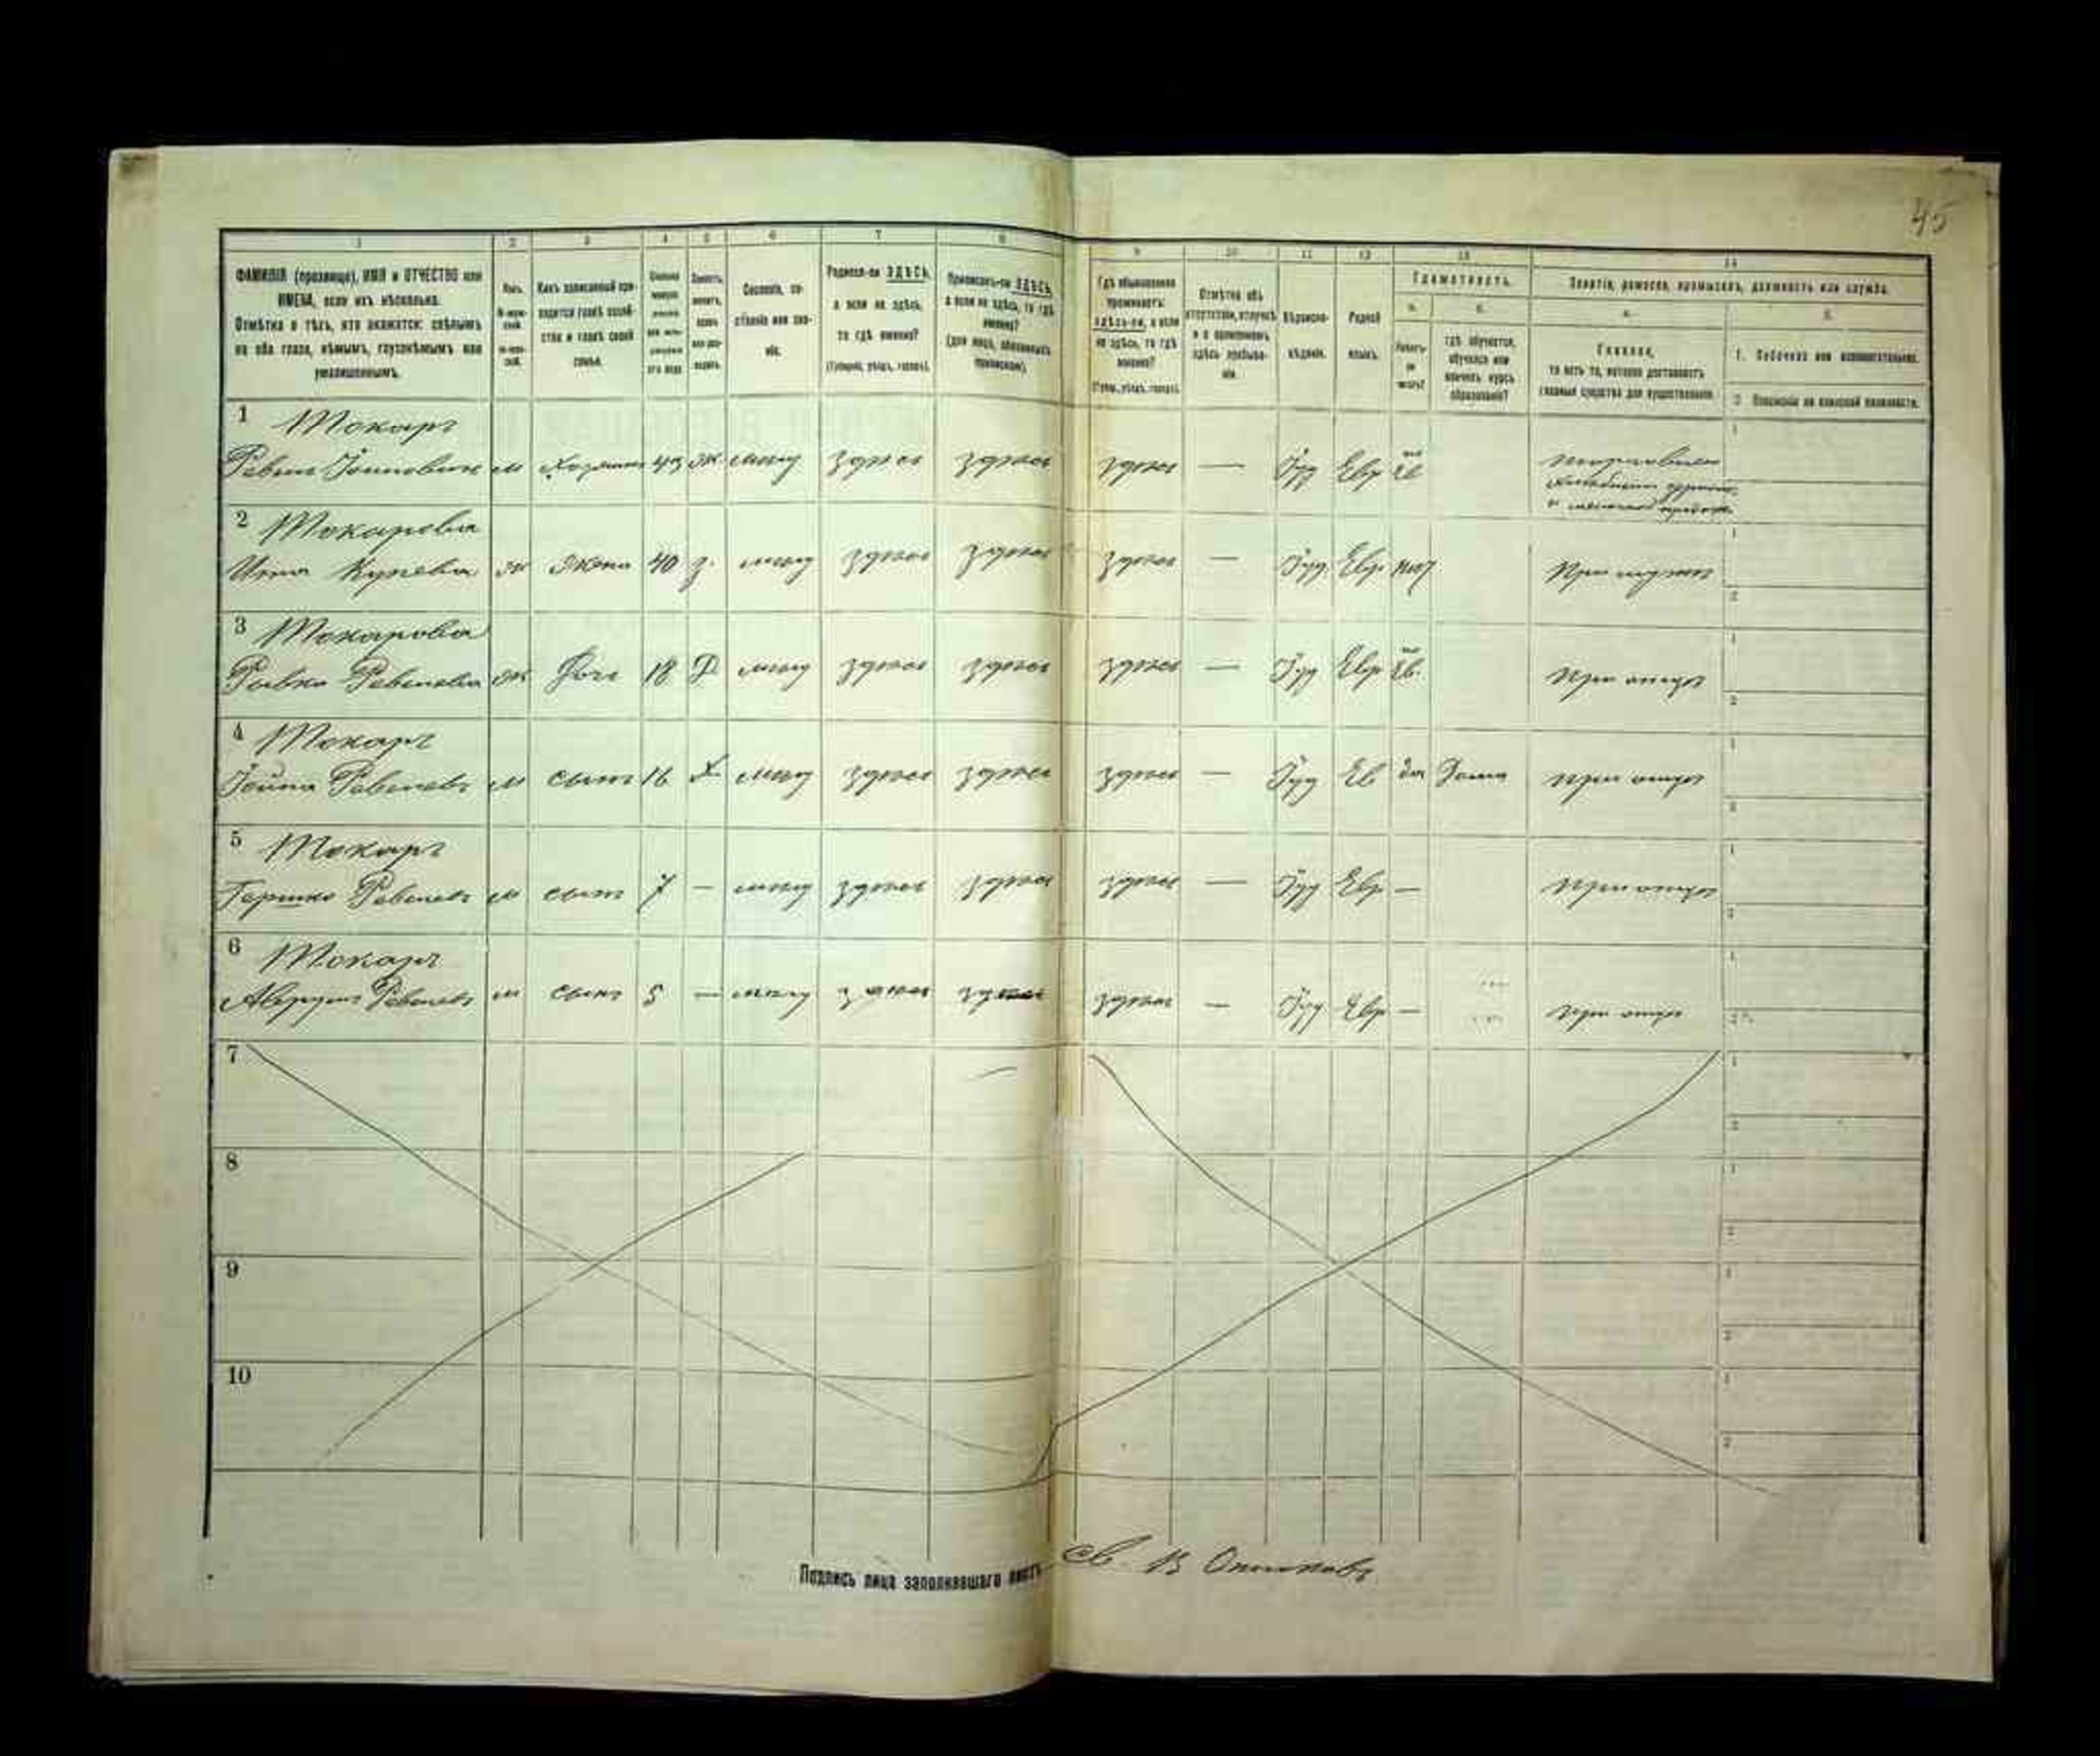 45
1 2 3 4 5 6 7 8 9 10 11 12 13 14
ФАМИЛІЯ (прозвище), ИМЯ и ОТЧЕСТВО или
ИМЕНА, если ихъ нѣсколько.
Отмѣтка о тѣхъ, кто окажется: слѣпымъ
на оба глаза, нѣмымъ, глухонѣмымъ или
умалишеннымъ.
Какъ записанный при-
ходится главѣ хозяй-
ства и главѣ своей
семьи.
Сословіе, со-
стояніе или зва-
ніе.
Родился-ли ЗДѢСЬ,
а если не здѣсь,
то гдѣ именно?
(Губернія, уѣздъ, городъ).
Приписанъ-ли ЗДѢСЬ,
а если не здѣсь, то гдѣ
именно?
(для лицъ, обязанныхъ
припискою).
Гдѣ обыкновенно
проживаетъ:
здѣсь-ли, а если
не здѣсь, то гдѣ
именно?
(Губ., уѣздъ, городъ).
Отмѣтка объ
отсутствіи, отлучкѣ
и о временномъ
здѣсь пребыва-
ніи.
Вѣроиспо-
вѣданіе.
Родной
языкъ.
Грамотность.
а. б.
Умѣетъ-
ли
читать?
гдѣ обучается,
обучался или
кончилъ курсъ
образованія?
Занятіе, ремесло, промыселъ, должность или служба.
а. б.
Главное,
то есть то, которое доставляетъ
главныя средства для существованія.
1. Побочное или вспомогательное.
2. Положеніе по воинской повинности.
1 Токарь
м Хозяинъ 43 ж мѣщ здѣсь здѣсь здѣсь — Іуд Евр
2 Токарева
ж жена 40 з. мѣщ здѣсь здѣсь здѣсь — Іуд. Евр нѣт При мужѣ
3 Токарова
Рывка Ревелева ж Дочь 18 Д мѣщ здѣсь здѣсь здѣсь — Іуд Евр При отцѣ
4 Токарь
Іойна Ревелевъ м сынъ 16 Х мѣщ здѣсь здѣсь здѣсь — Іуд Ев да Дома при отцѣ
5 Токарь
Гершко Ревелевъ м сынъ 7 — мѣщ здѣсь здѣсь здѣсь — Іуд Евр — при отцѣ
6 Токарь
Ревелевъ м сынъ 5 — мѣщ здѣсь здѣсь здѣсь — Іуд Евр — при отцѣ
7
8
9
10
Подпись лица заполнявшаго листъ